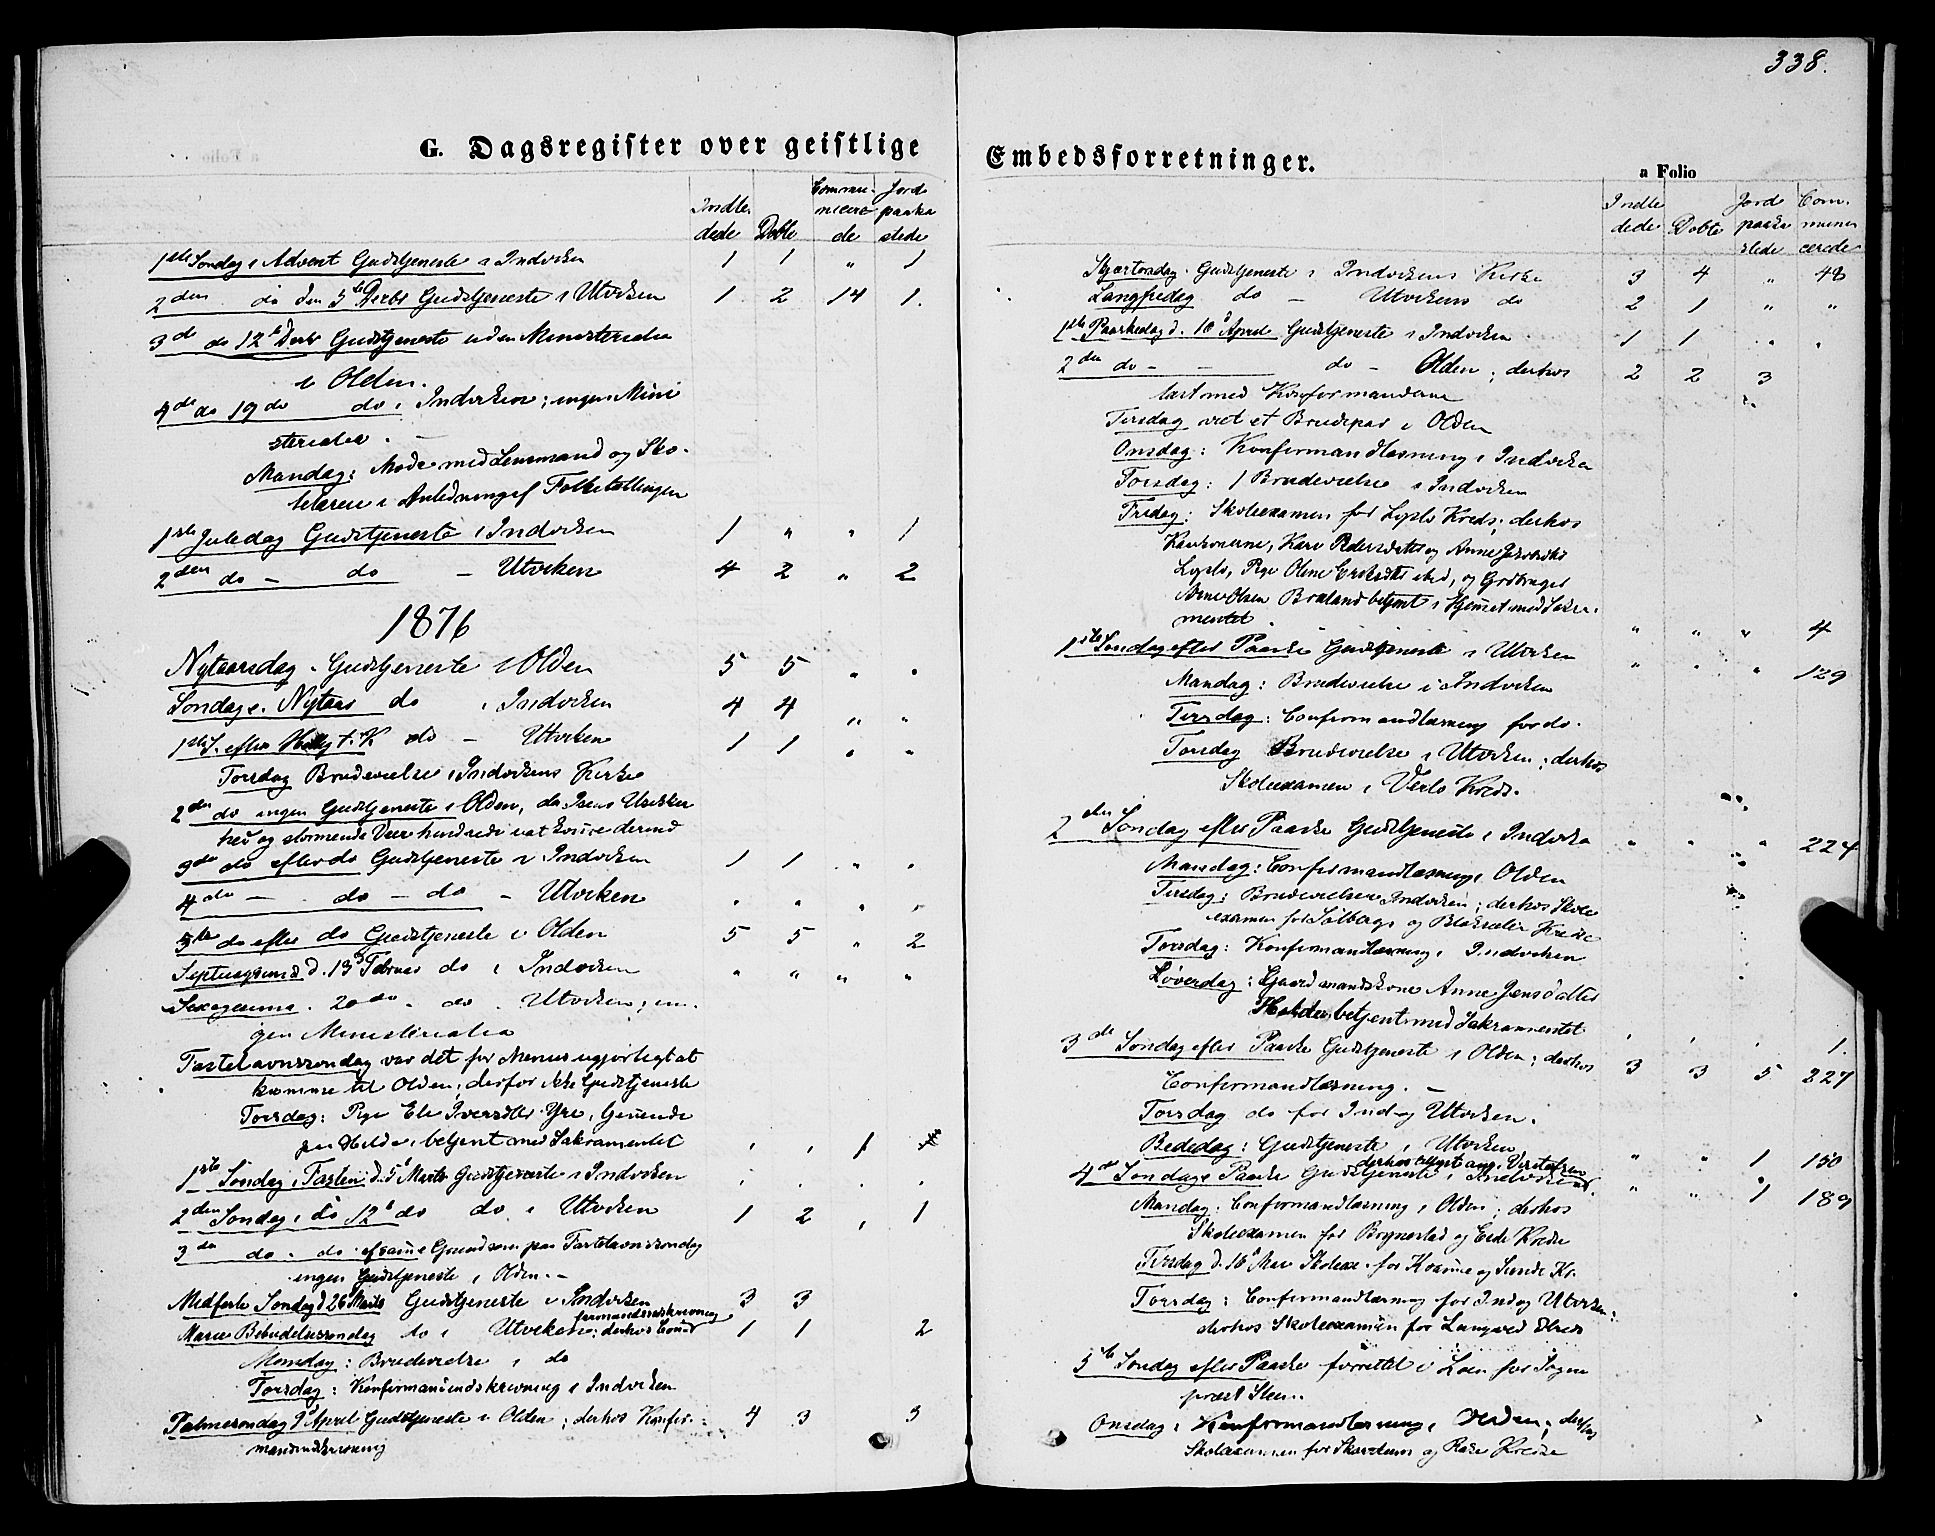 338.
G. Dagsregister over geistlige
Indle dede Døbte Commu- nicere de Jord paaka stede
1ste Søndag i Advent Gudstjeneste i Indviken 1 1 " 1
2den do den 5te Decbr Gudstjeneste i Utviken 1 2 14 1.
3de do 12te Decbr Gudstjeneste uden Ministerialia
i Olden.
4de do 19de do i Indviken; ingen Mini
sterialia.
Mandag: Møde med Lensmand og Sko-
lelærere i Anledning af Folketællingen
1ste Juledag Gudstjeneste i Indviken 1 " " 1
2den do - do - Utviken 4 2 " 2
1876
Nytaarsdag Gudstjeneste i Olden 5 5 " "
Søndag e. Nytaar do i Indviken 4 4 " "
1ste S. efter Hellig t. K do - Utviken 1 1 " "
Torsdag Brudevielse i Indvikens Kirke
2den do ingen Gudstjeneste i Olden, da Isens Usikker
hed og stormende Veir hindrede at komme derind
3de do efter do Gudstjeneste i Indviken 1 1 " "
4de - do - do - Utviken " " " "
5te do efter do Gudstjeneste i Olden 5 5 " 2
Septuagesima d. 13de Februar do i Indviken " " " "
Sexagesima 20de - do - Utviken; in-
gen Ministerialia
Fastelavnssøndag var det for Menes ugjørligt at
komme til Olden; derfor ikke Gudstjeneste
Torsdag: Pige Eli Iversdtr Yri,
paa Hilde, betjent med Sakramentet " " 1
1ste Søndag i Fasten d. 5te Marts Gudstjeneste i Indviken " " " "
2den Søndag i do 12te do do i Utviken 1 2 " 1
3de do - do af samme Grund som paa Fastelavnssøndag
ingen Gudstjeneste i Olden.-
Midfaste Søndag d 26 Marts Gudstjeneste i Indviken 3 3
Mariæ Bebudelsessøndag do i Utviken; derhos Conf firmandindskrivning 1 1 2
Mandag: Brudevielse i do
Torsdag: Konfirmanindskrivning i Indviken
Palmesøndag 9de April Gudstjeneste i Olden; derhos Konfir- 4 3 3
mandindskrivning
Embedsforretninger.
a Folio
Indle dede Døbte Jord paaka stede Com- munic cerede
Skjærtorsdag Gudstjeneste i Indvikens Kirke 3 4 " 48
Langfredag do - Utvikens do 2 1 " "
1ste Paaskedag d. 16de April Gudstjeneste i Indviken 1 1 " "
2den do - - do - Olden; derhos 2 2 3
læst med Konfirmanderne
Tirsdag viet et Brudepar i Olden
Onsdag: Konfirmandlæsning i Indviken
Torsdag: 1 Brudevielse i Indviken
Fredag: Skoleexamen for Kreds; derhos
Kari Pedersdatter og Anne
Pige Oline og
Olsen betjent i Hjemmet med Sakra-
mentet " " " 4
1ste Søndag efter Paaske Gudstjeneste i Utviken " " " 129
Mandag: Brudevielse i Indviken
Tirsdag: Confirmandlæsning for do.
Torsdag Brudevielse i Utviken; derhos
Skoleexamen i Kreds.
2den Søndag efter Paaske Gudstjeneste i Indviken " " " 224
Mandag: Confirmandlæsning i Olden
Tirsdag: Brudevielse i Indviken; derhos Skole
examen for og Kredse
Torsdag: Konfirmandlæsning i Indviken
Løverdag: Gaardmandskone Anne Jensdatter
Hilde, betjent med Sakramentet " " " 1.
3de Søndag efter Paaske Gudstjeneste i Olden; derhos 3 3 5 227
Confirmandlæsning. -
Torsdag do for Ind og Utviken.
Bededag: Gudstjeneste i Utviken " " 1 150
4de Søndag e Paaske Gudstjeneste i Indviken derhos " " 1 189
Mandag: Confirmandlæsning i Olden; derhos
Skoleexamen for og Eide Kredse
Tirsdag d. 16de Mai Skoleex. for og Sunde Kr.
Torsdag: Confirmandlæsning for Ind og Utviken;
derhos Skoleexamen for Kreds
5te Søndag efter Paaske forrettet i Loen for Sogne
præst Steen.
Onsdag: Konfirmandlæsning i Olden; derhos
Skoleexamen for og Kredse